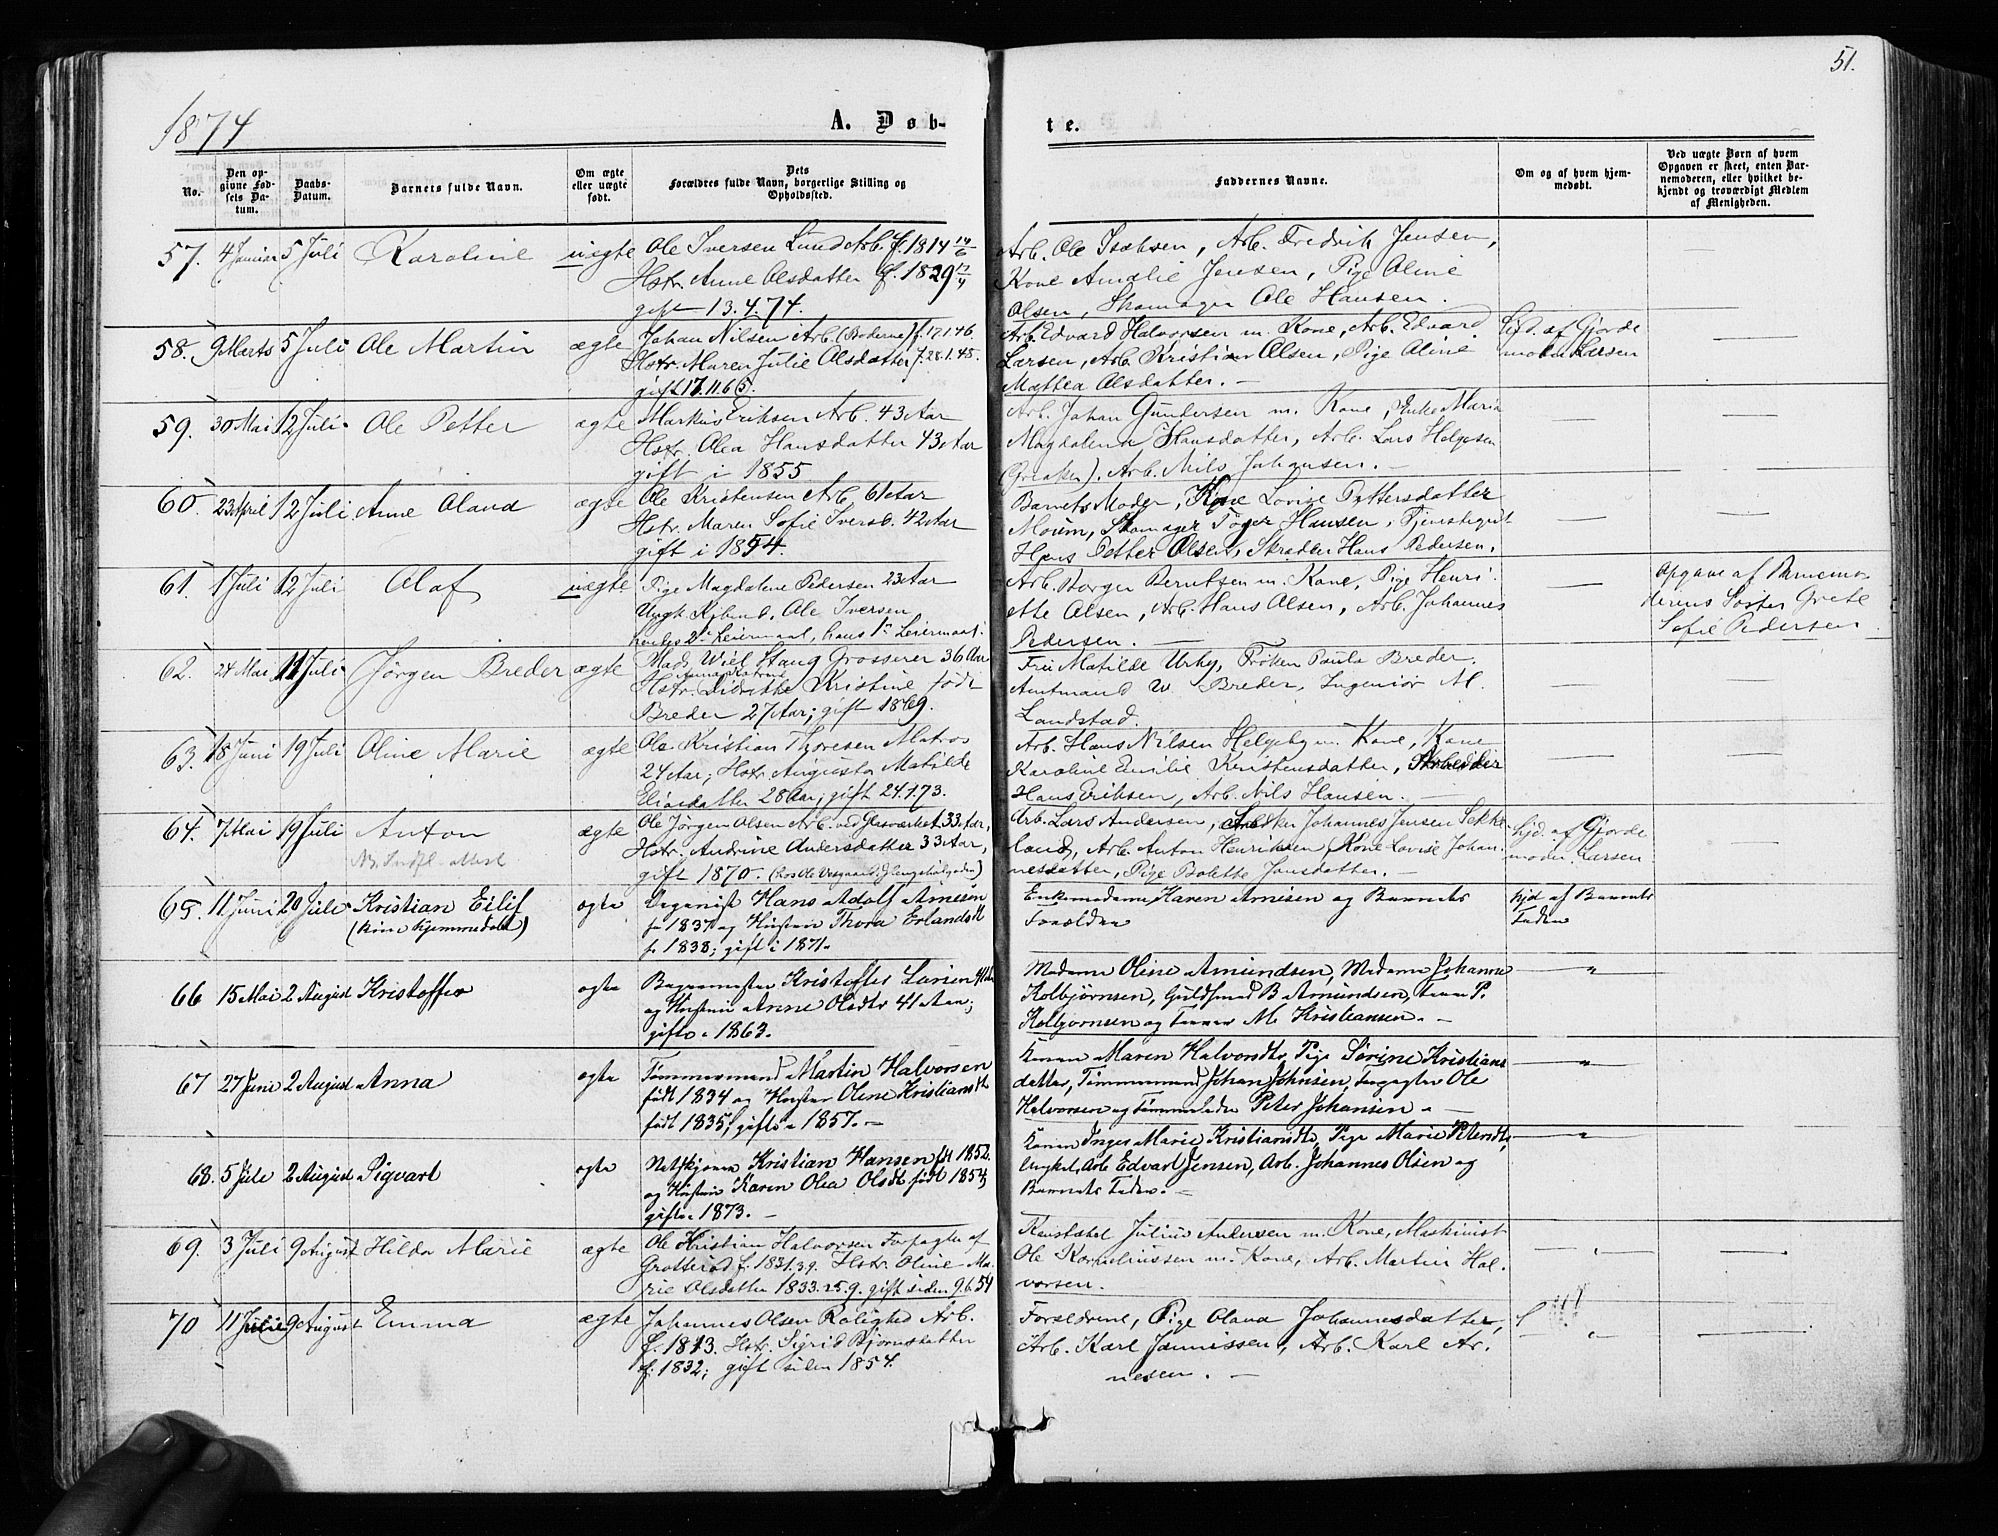 51.
1874
A. Døb-
te.
No.
Den op-
givne Fød-
sels Da-
tum.
Daabs-
Datum.
Barnets fulde Navn.
Om ægte
eller uægte
født.
Dets
Forældres fulde Navn, borgerlige Stilling og
Opholdssted.
Faddernes Navne.
Om og af hvem hjem-
medøbt.
Ved uægte Børn af hvem
Opgaven er skeet, enten Bar-
nemoderen, eller hvilket be-
kjendt og troværdigt Medlem
af Menigheden.
57. 4 Januar 5 Juli Karoline uægte Ole Iversen Lund Arb. f. 1814 14/6
Hstr. Anne Olsdatter f. 1829
gift 13.4.74.
Arb. Ole Isaksen, Arb. Fredrik Jensen,
Kone Amalie Jensen, Pige Oline
Olsen, Skomager Ole Hansen.
58. 9 Marts 5 Juli Ole Martin ægte Johan Nilsen Arb. (Boderne) f. 17.1.46.
Hstr. Maren Julie Olsdatter f. 28.1.45.
gift 17.11.65.
Arb. Edvard Halvorsen m. Kone, Arb. Edvard
Larsen, Arb. Kristian Olsen, Pige Oline
Mathea Olsdatter. —
Hjd. af Gjorde
moder Larsen
59. 30 Mai 12 Juli Ole Petter ægte Markus Eriksen Arb. 43 Aar
Hstr. Olea Hansdatter 43 Aar
gift i 1855
Arb. Johan Gundersen m. Kone, Enke Maria
Magdalena Hansdatter, Arb. Lars Helgesen
(Greaker). Arb. Nils Johansen. —
60. 23 April 12 Juli Anne Olava ægte Ole Kristensen Arb. 61 Aar
Hstr. Maren Sofie Iversd. 42 Aar
gift i 1854.
Barnets Moder, Kone Lovise Pettersdatter
Moum, Skomager Hansen, Tjenstegut
Hans Petter Olsen, Skræder Hans Pedersen.
61. 1 Juli 12 Juli Olaf uægte Pige Magdalene Pedersen 23 Aar
Ungk. Ole Iversen
hendes 2det Leiermaal, hans 1ste Leiermaal.
Arb. Berntsen m. Kone, Pige Henri-
ette Olsen, Arb. Hans Olsen, Arb. Johannes
Pedersen. —
Opgave af Barnemo-
derens Søster Grete
Sofie Pedersen
62. 24 Mai 11 Juli Jørgen Breder ægte Mads Wiel Stang Grosserer 36 Aar
Hstr. Kristine født
Breder 27 Aar; gift 1869.
Fru Matilde Urby, Frøken Paula Breder.
Amtmand W. Breder, Ingeniør M.
Landstad.
63. 18 Juni 19 Juli Oline Marie ægte Ole Kristian Thoresen Matros
24 Aar; Hstr. Augusta Matilde
Eliasdatter 28 Aar; gift 24.1.73.
Arb. Hans Nilsen Helgeby m. Kone, Kone
Karoline Emilie Kristensdatter, Arbeider
Hans Eriksen, Arb. Nils Hansen. —
64. 7 Mai 19 Juli Anton ægte Ole Jørgen Olsen Arb. ved Glasværket 33 Aar,
Hstr. Andrine Andersdatter 33 Aar,
gift 1870.
Arb. Lars Andersen, Johannes Jensen Sekke-
lund, Arb. Anton Henriksen, Kone Lovise Johan-
nesdatter, Pige Bolette Jansdatter. —
Hjd. af Gjorde
moder Larsen
65. 11 Juni 20 Juli Kristian Eilif ægte Organist Hans Adolf Arnisen
f. 1837 og Hustru Thora Erlandsdt
f. 1838; gift i 1871.
Enkemadame Karen Arnisen og Barnets
Forældre
Hjd af Barnets
Fader
66 15 Mai 2 August Kristoffer ægte Bagermester Kristoffer Larsen
og Hustru Anne Olsdtr 41 Aar;
gifte 1863.
Madame Oline Amundsen, Madame Johanne
Kolbjørnsen, Guldsmed B Amundsen, P.
Kolbjørnsen og M. Kristiansen. —
67 27 Juni 2 August Anna ægte Tømmermand Martin Halvorsen
født 1834 og Hustru Oline Kristiansdtr
født 1835; gifte 1857. —
Konen Maren Halvorsdtr, Pige Sørine Kristians-
datter, Tømmermand Johan Johnsen, Forpagter Ole
Halvorsen og Peter Johansen. —
68. 5 Juli 2 August Sigvart ægte Kristian Hansen født 1852.
og Hustru Karen Olea Olsdt født 1854;
gifte 1873. —
Konen Marie Kristiansdtr, Pige Marie
Ungkarl, Arb Edvart Jensen, Arb. Johannes Olsen og
Barnets Fader. —
69. 3 Juli 9 August Hilda Marie ægte Ole Kristian Halvorsen Forpagter af
Grotterød f. 1831.3.9. Hstr. Oline Ma-
rie Olsdatter 1833.25.9. gift siden 9.6.54
Julius Andersen m. Kone, Maskinist
Ole Kornelinssen m. Kone, Arb. Martin Hal-
vorsen.
70 11 Juli 9 August Emma ægte Johannes Olsen Rolighed Arb.
f. 1813. Hstr. Sigrid Bjørnsdatter
f. 1832; gift siden 1854.
Forældrene, Pige Olava Johannesdatter,
Arb. Karl Jannissen, Arb. Karl Ar-
nesen. —